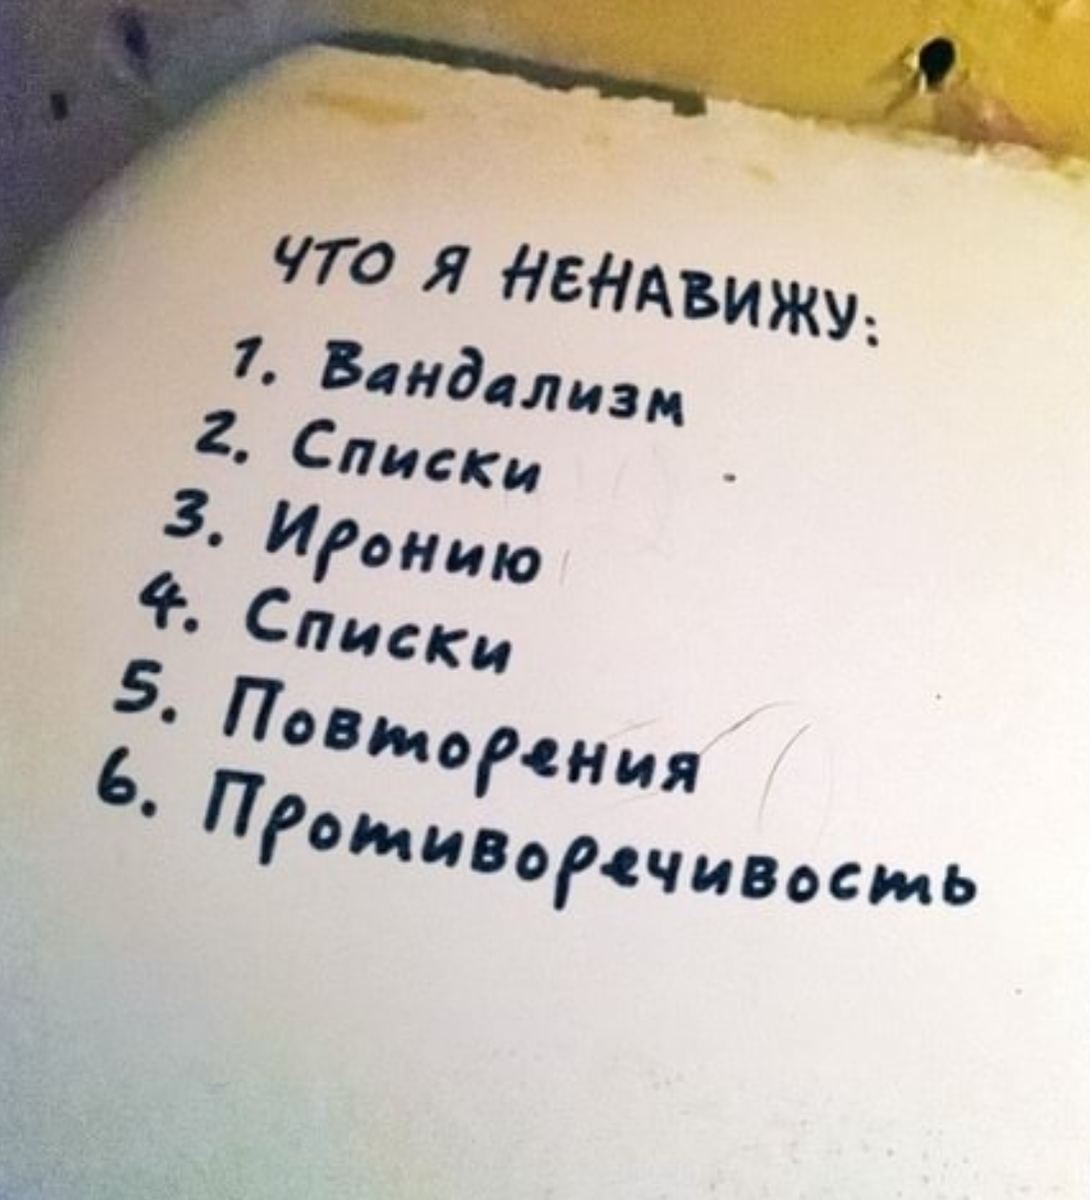 ЧТО Я НЕНАВИЖУ:
1. Вандализм
2. Списки
3. Иронию
4. Списки
5. Повторения
6. Противоречивость